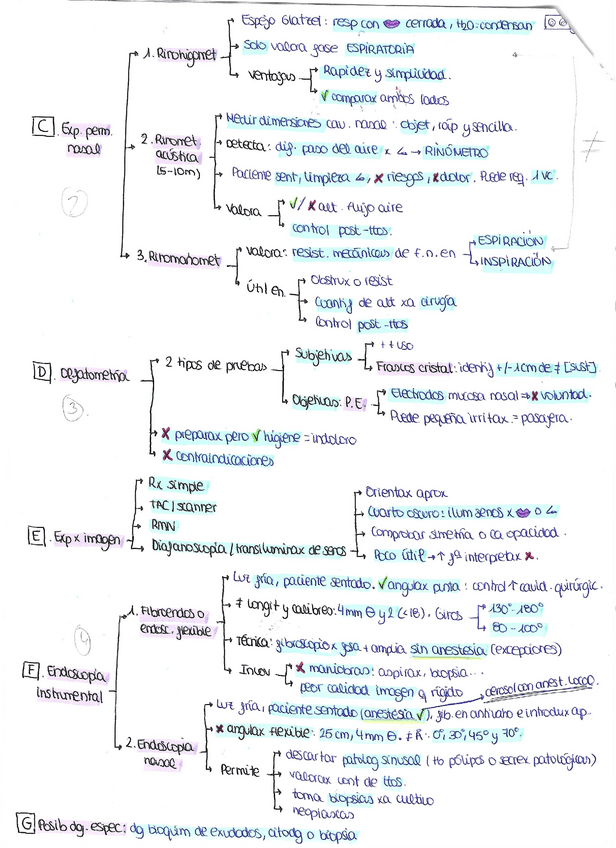 Espejo Glatzel: resp con cerrada, H2O: condensan
1. Rinohigromet
Solo valora fase ESPIRATORIA
Ventajas
Rapidez y simplicidad.
✓ comparar ambos lados
C. Exp. perm. nasal
2. Rinomet acústica (5-10m)
Medir dimensiones cav. nasal: objet, ráp y sencilla.
Detecta: dif. paso del aire x → RINÓMETRO
Paciente sent, limpieza, x riesgos, x dolor. Puede req. 1 vc.
Valora
✓/x alt. flujo aire
control post-ttos.
≠
3. Rinomanomet
Valora: resist. mecánicas de f.n. en
ESPIRACIÓN
INSPIRACIÓN
Útil en
Obstrux o resist
Cuantif de alt xa cirugía
Control post-ttos
D. Olfatometría
3
2 tipos de pruebas
Subjetivas
++uso
Frascos cristal: identif +/-1cm de ≠ [sust]
Objetivas: P.E.
Electrodos mucosa nasal ⇒ x voluntad.
Puede pequeña irritax = pasajera.
x preparax pero ✓ higiene = indoloro
x contraindicaciones
E. Exp x imagen
Rx simple
TAC/scanner
RMN
Diafanoscopia/transiluminax de senos
Orientax aprox
Cuarto oscuro: ilum senos x o
Comprobar simetría o ca opacidad.
Poco útil → ↑ fª interpretax x.
4
F. Endoscopia instrumental
1. Fibroendos o endosc. flexible
Luz fría, paciente sentado. ✓ angulax punta: control ↑ cavid. quirúrgic.
≠ longit y calibreo: 4mm Θ y 2 (<18). Giros
130°-180°
80-100°
Técnica: fibroscopio x fosa + amplia sin anestesia (excepciones)
Inconv
x maniobras: aspirax, biopsia...
peor calidad imagen q rígido
aerosol con anest. local
2. Endoscopia nasal
Luz fría, paciente sentado (anestesia ✓), fib. en antriato e introdux ap.
x angulax flexible: 25cm, 4mm Θ. ≠ Å: 0°, 30°, 45° y 70°.
Permite
descartar patolog sinusal (tb pólipos o secrex patológicas)
valorax cont de ttos.
toma biopsias xa cultivo
neoplasias
G Posib dg. espec: dg bioquim de exudados, citodg o biopsia